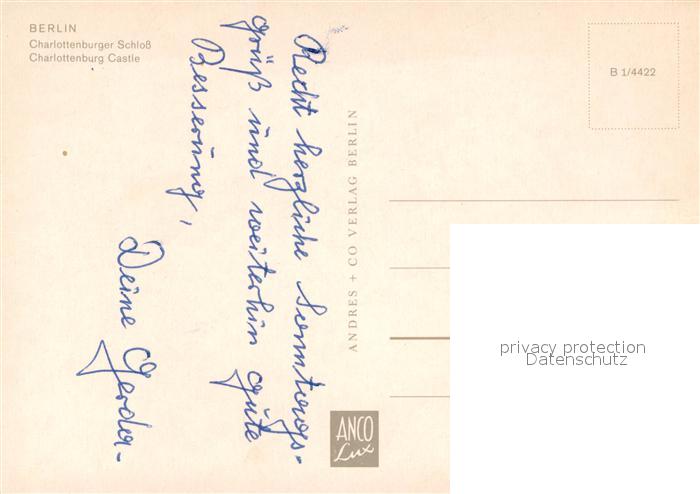 BERLIN
Charlottenburger Schloß
Charlottenburg Castle
Recht herzliche Sonntags-
grüß und weiterhin gute
Besserung,
Deine Gerda-
ANDRES + CO VERLAG BERLIN
ANCO
Lux
B 1/4422
privacy protection
Datenschutz